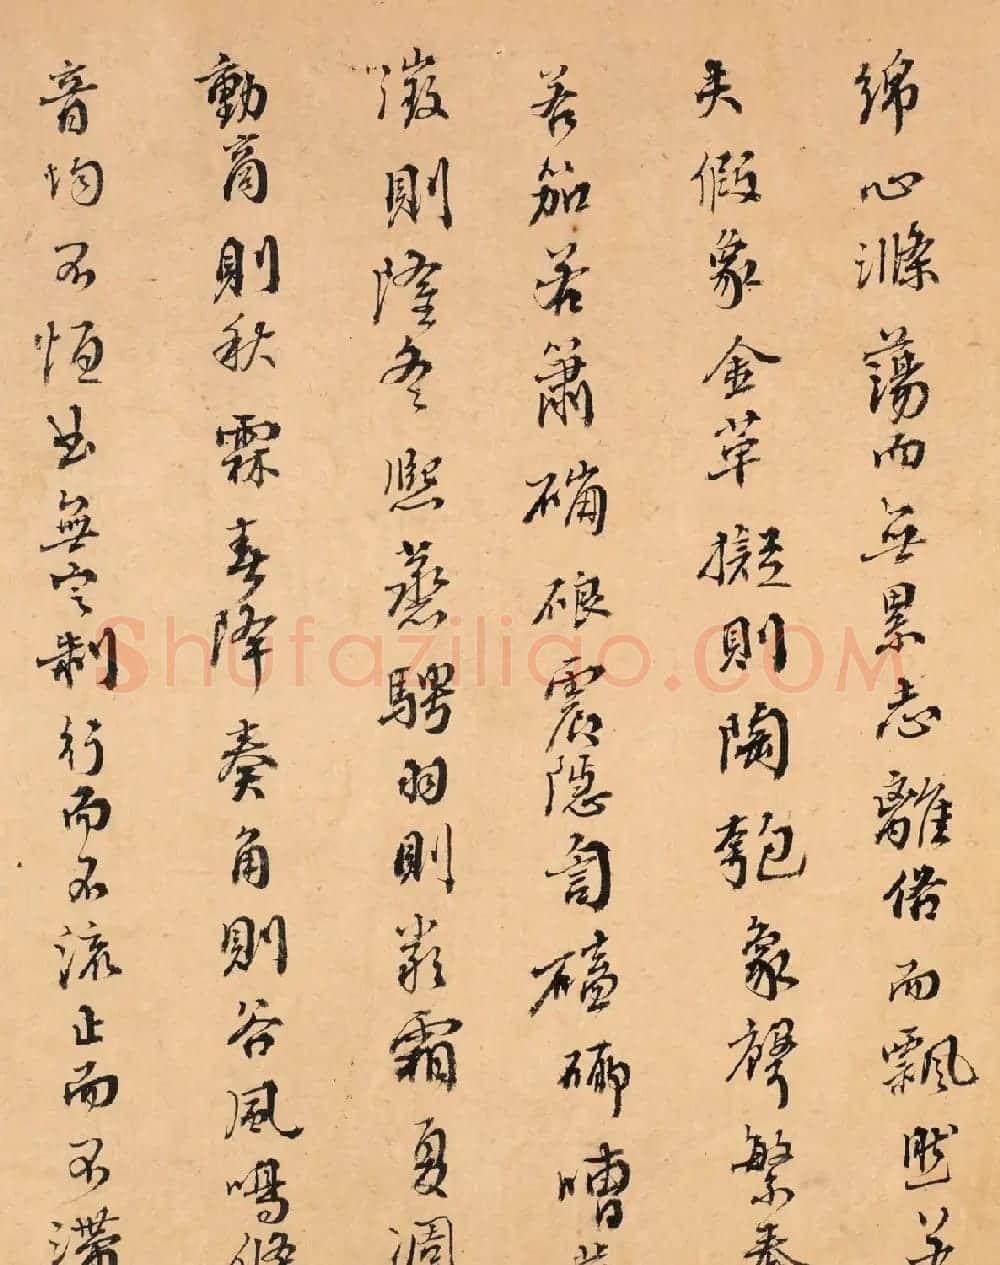 綿心滌蕩而無累志離俗而飄然若
夫假象金革擬則陶匏象聲繁奏
若笳若簫硠震隱訇磕嘈
徵則隆冬熙蒸騁羽則嚴霜夏凋
動商則秋霖春降奏角則谷風鳴條
音均不恒曲無定制行而不流止而不滯
Shufaziliao.COM